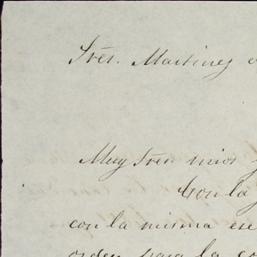 Sres. Martinez
Muy Sres mios
Con la
con la misma
orden para la